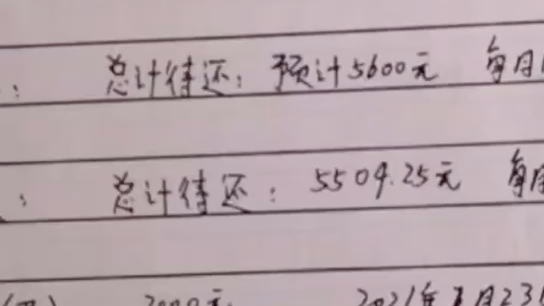 : 总计待还: 预计5600元 每月
: 总计待还: 5504.25元 每
2000元 2021年 月23